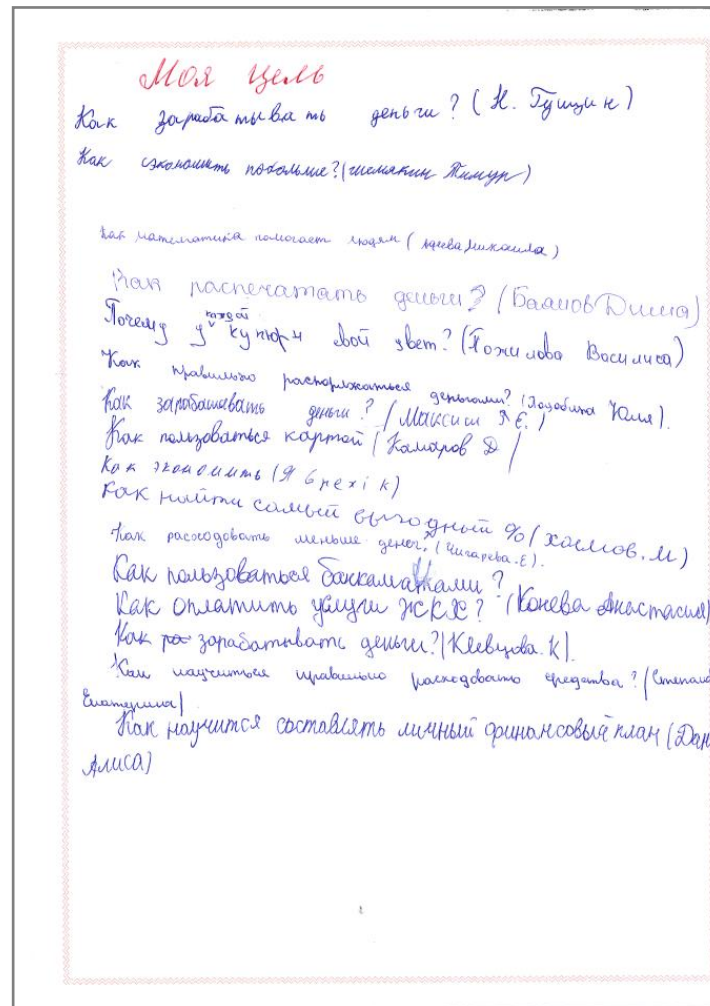 Моя цель
Как зарабатывать деньги? (Н. Гущин)
Как сэкономить побольше? (Шемякин Тимур)
Как математика помогает людям (
Как распечатать деньги? (Баянов Дима)
Почему у каждой купюры свой цвет? (Пожилова Василиса)
Как правильно распоряжаться деньгами? (Юля).
Как зарабатывать деньги? (Максим Я Е.)
Как пользоваться картой (Комаров Д
Как экономить (Я
Как найти самый выгодный % (
Как расходовать меньше денег? (Чигарева.Е).
Как пользоваться банкаматами?
Как оплатить услуги ЖКХ? (Конева Анастасия)
Как ра зарабатывать деньги? (Клевцова.К).
Как научиться правильно расходовать средства? (Степано
Екатерина)
Как научится составлять личный финансовый план (Дан
Алиса)